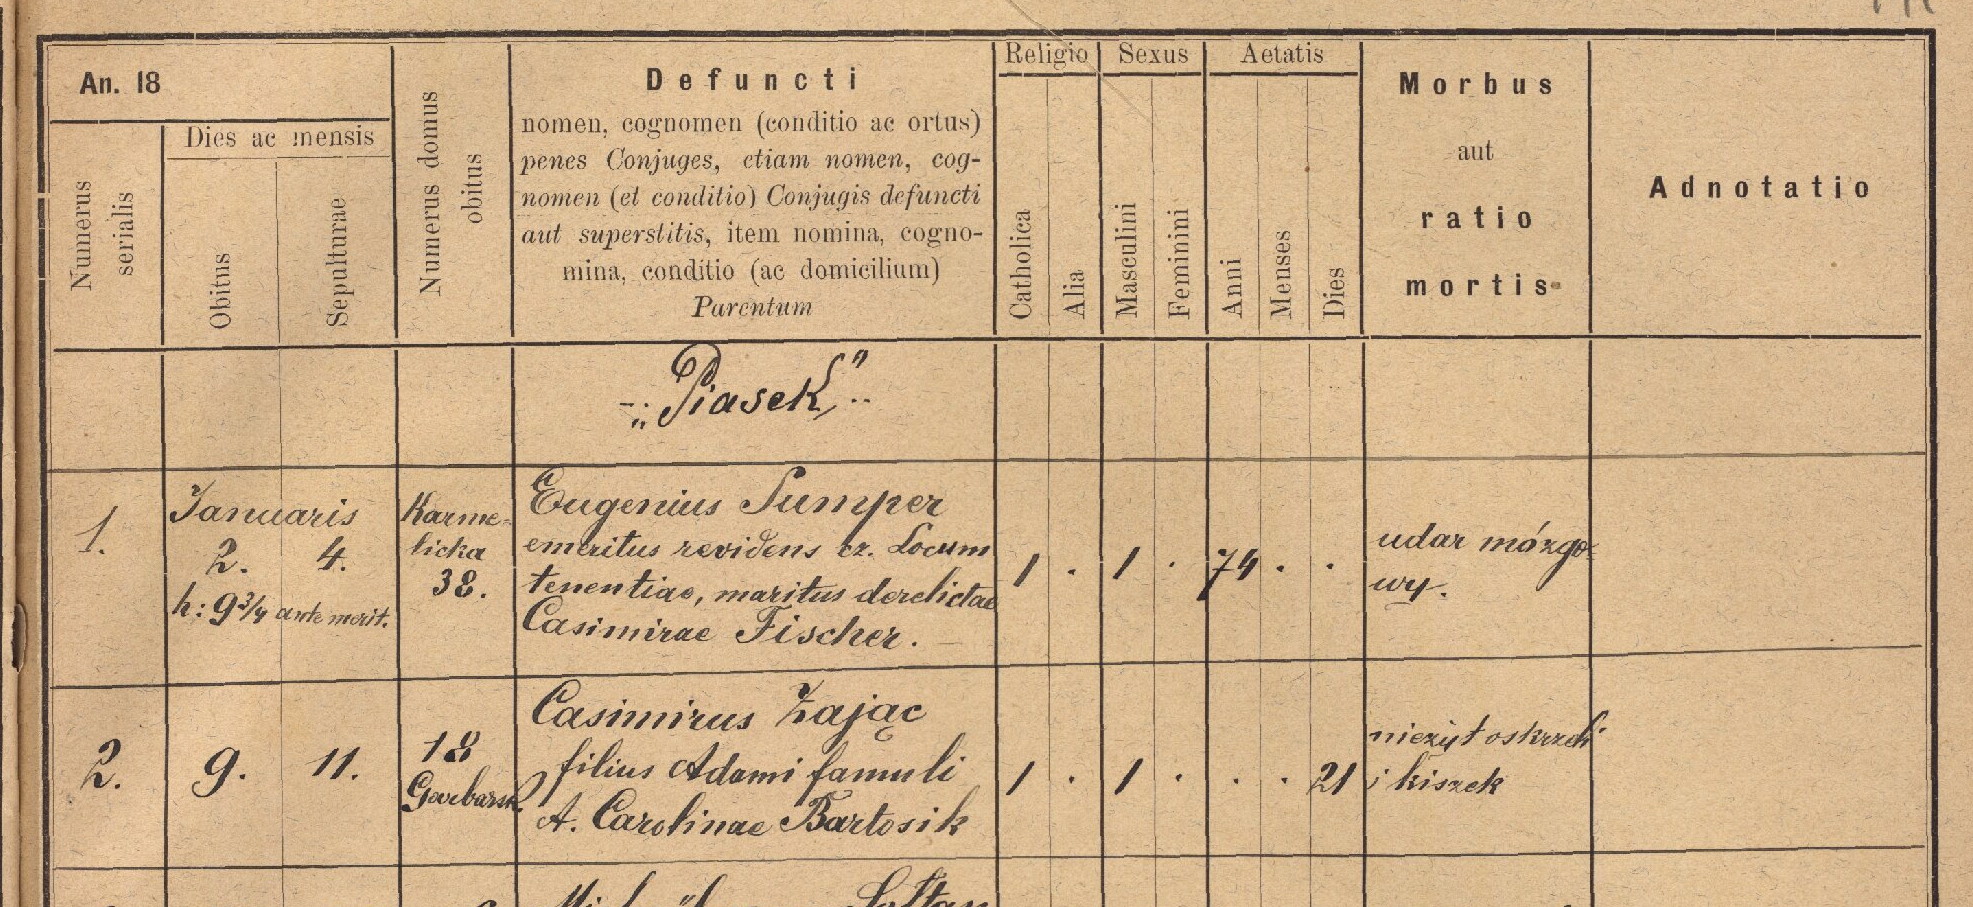 An. 18
Dies ac mensis
Numerus serialis
Obitus
Sepulturae
Numerus domus obitus
Defuncti
nomen, cognomen (conditio ac ortus)
penes Conjuges, etiam nomen, cog-
nomen (et conditio) Conjugis defuncti
aut superstitis, item nomina, cogno-
mina, conditio (ac domicilium)
Parentum
Religio
Catholica
Alia
Sexus
Masculini
Feminini
Aetatis
Anni
Menses
Dies
Morbus
aut
ratio
mortis
Adnotatio
-„Piasek"..
1.
Januaris
2. 4.
h: 9 3/4 ante merit.
Karme-
licka
38.
Eugenius Sumper
emeritus revidens cz. Locum
tenentiae, maritus derelictae
Casimirae Fischer.
1 . 1 . 74 . .
udar mózgo-
wy.
2.
9. 11.
18
Garbarsk.
Casimirus Zając
filius Adami famuli
A. Carolinae Bartosik
1 . 1 . . . 21
nieżyt oskrzeli
i kiszek
Sołtan